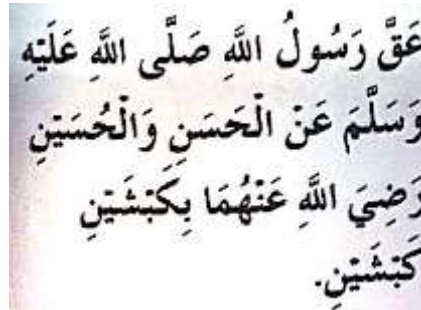 عَقَّ رَسُولُ اللَّهِ صَلَّى اللَّهُ عَلَيْهِ
وَسَلَّمَ عَنْ الْحَسَنِ وَالْحُسَيْنِ
رَضِيَ اللَّهُ عَنْهُمَا بِكَبْشَيْنِ
كَبْشَيْنِ.